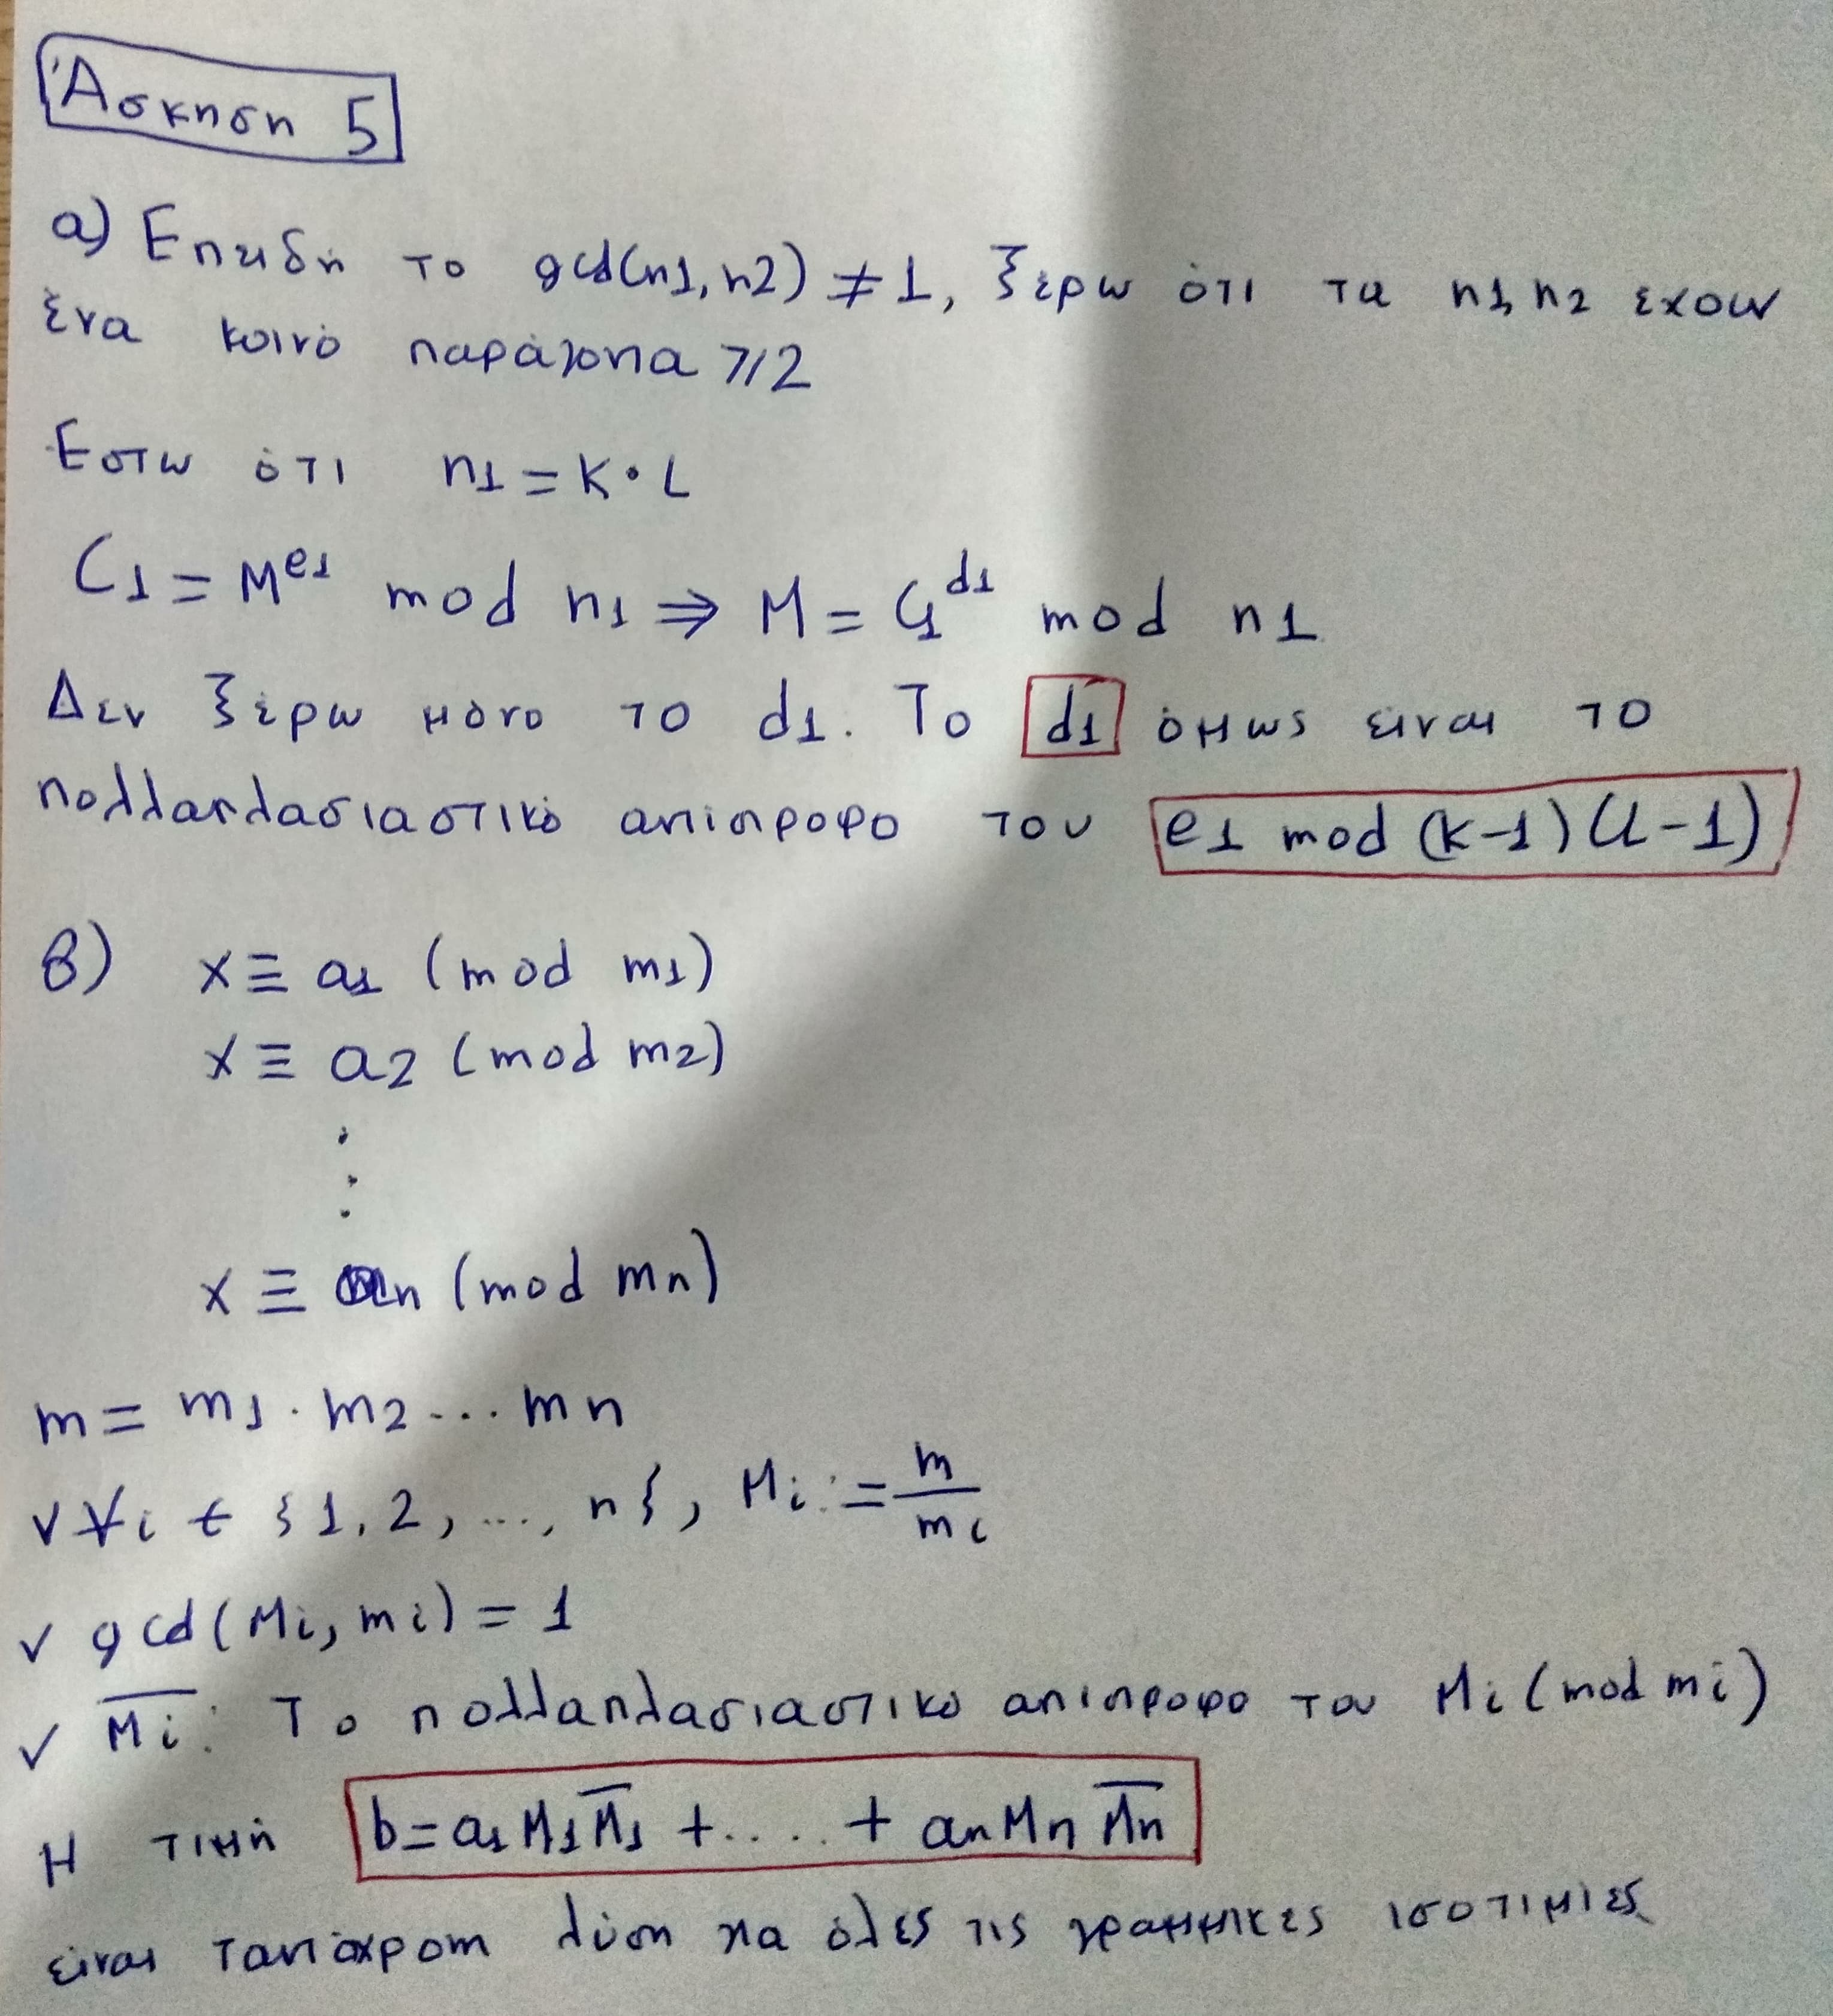 Άσκηση 5
α) Επειδή το gcd(n1, n2) ≠ 1, ξέρω ότι τα n1, n2 έχουν
ένα κοινό παράγοντα >/2
Έστω ότι n1 = K · L
C1 = M^e1 mod n1 ⇒ M = C1^d1 mod n1
Δεν ξέρω μόνο το d1. Το d1 όμως είναι το
πολλαπλασιαστικό αντίστροφο του e1 mod (k-1)(L-1)
β) x ≡ a1 (mod m1)
x ≡ a2 (mod m2)
⋮
x ≡ an (mod mn)
m = m1 · m2 ... mn
✓ ∀i ∈ {1, 2, ..., n}, Mi := m/mi
✓ gcd(Mi, mi) = 1
✓ M̅i̅ : Το πολλαπλασιαστικό αντίστροφο του Mi (mod mi)
Η τιμή b = a1 M1 M̅1̅ + .... + an Mn M̅n̅
είναι ταυτόχρονη λύση για όλες τις γραμμικές ισοτιμίες